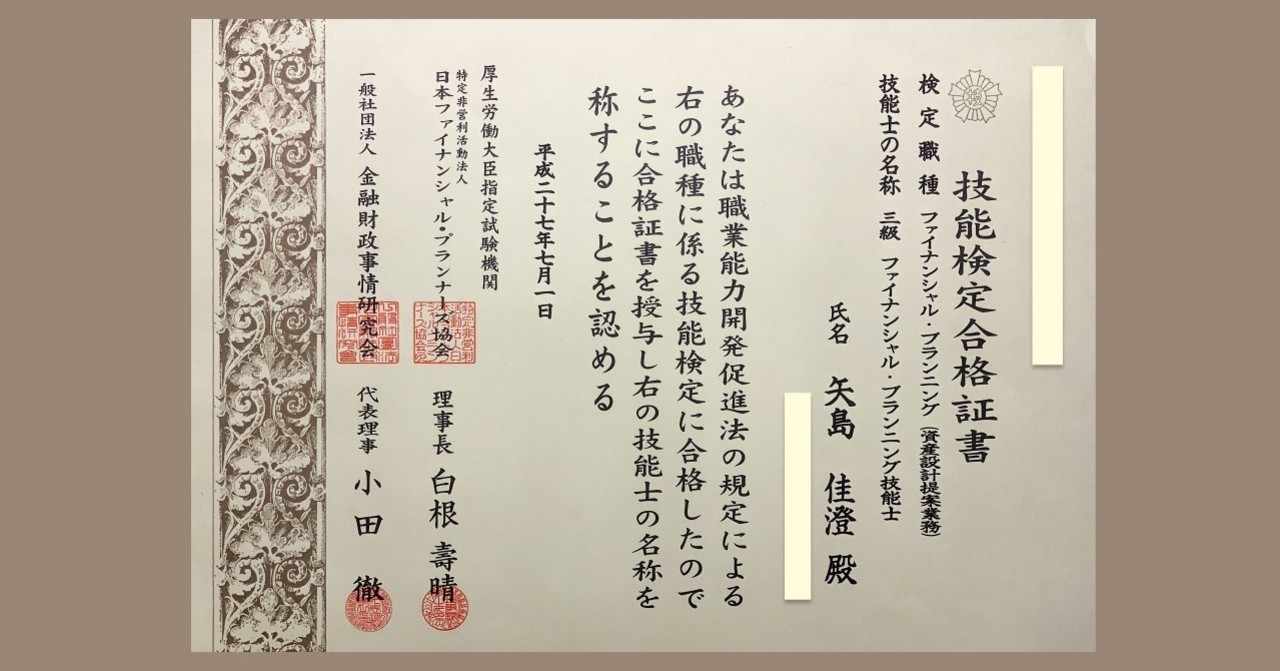 技能検定合格証書
検定職種 ファイナンシャル・プランニング(資産設計提案業務)
技能士の名称 三級 ファイナンシャル・プランニング技能士
氏名 矢島 佳澄 殿
あなたは職業能力開発促進法の規定による
右の職種に係る技能検定に合格したので
ここに合格証書を授与し右の技能士の名称を
称することを認める
平成二十七年七月一日
厚生労働大臣指定試験機関
特定非営利活動法人
日本ファイナンシャル・プランナーズ協会 理事長 白根 壽晴
一般社団法人 金融財政事情研究会 代表理事 小田 徹